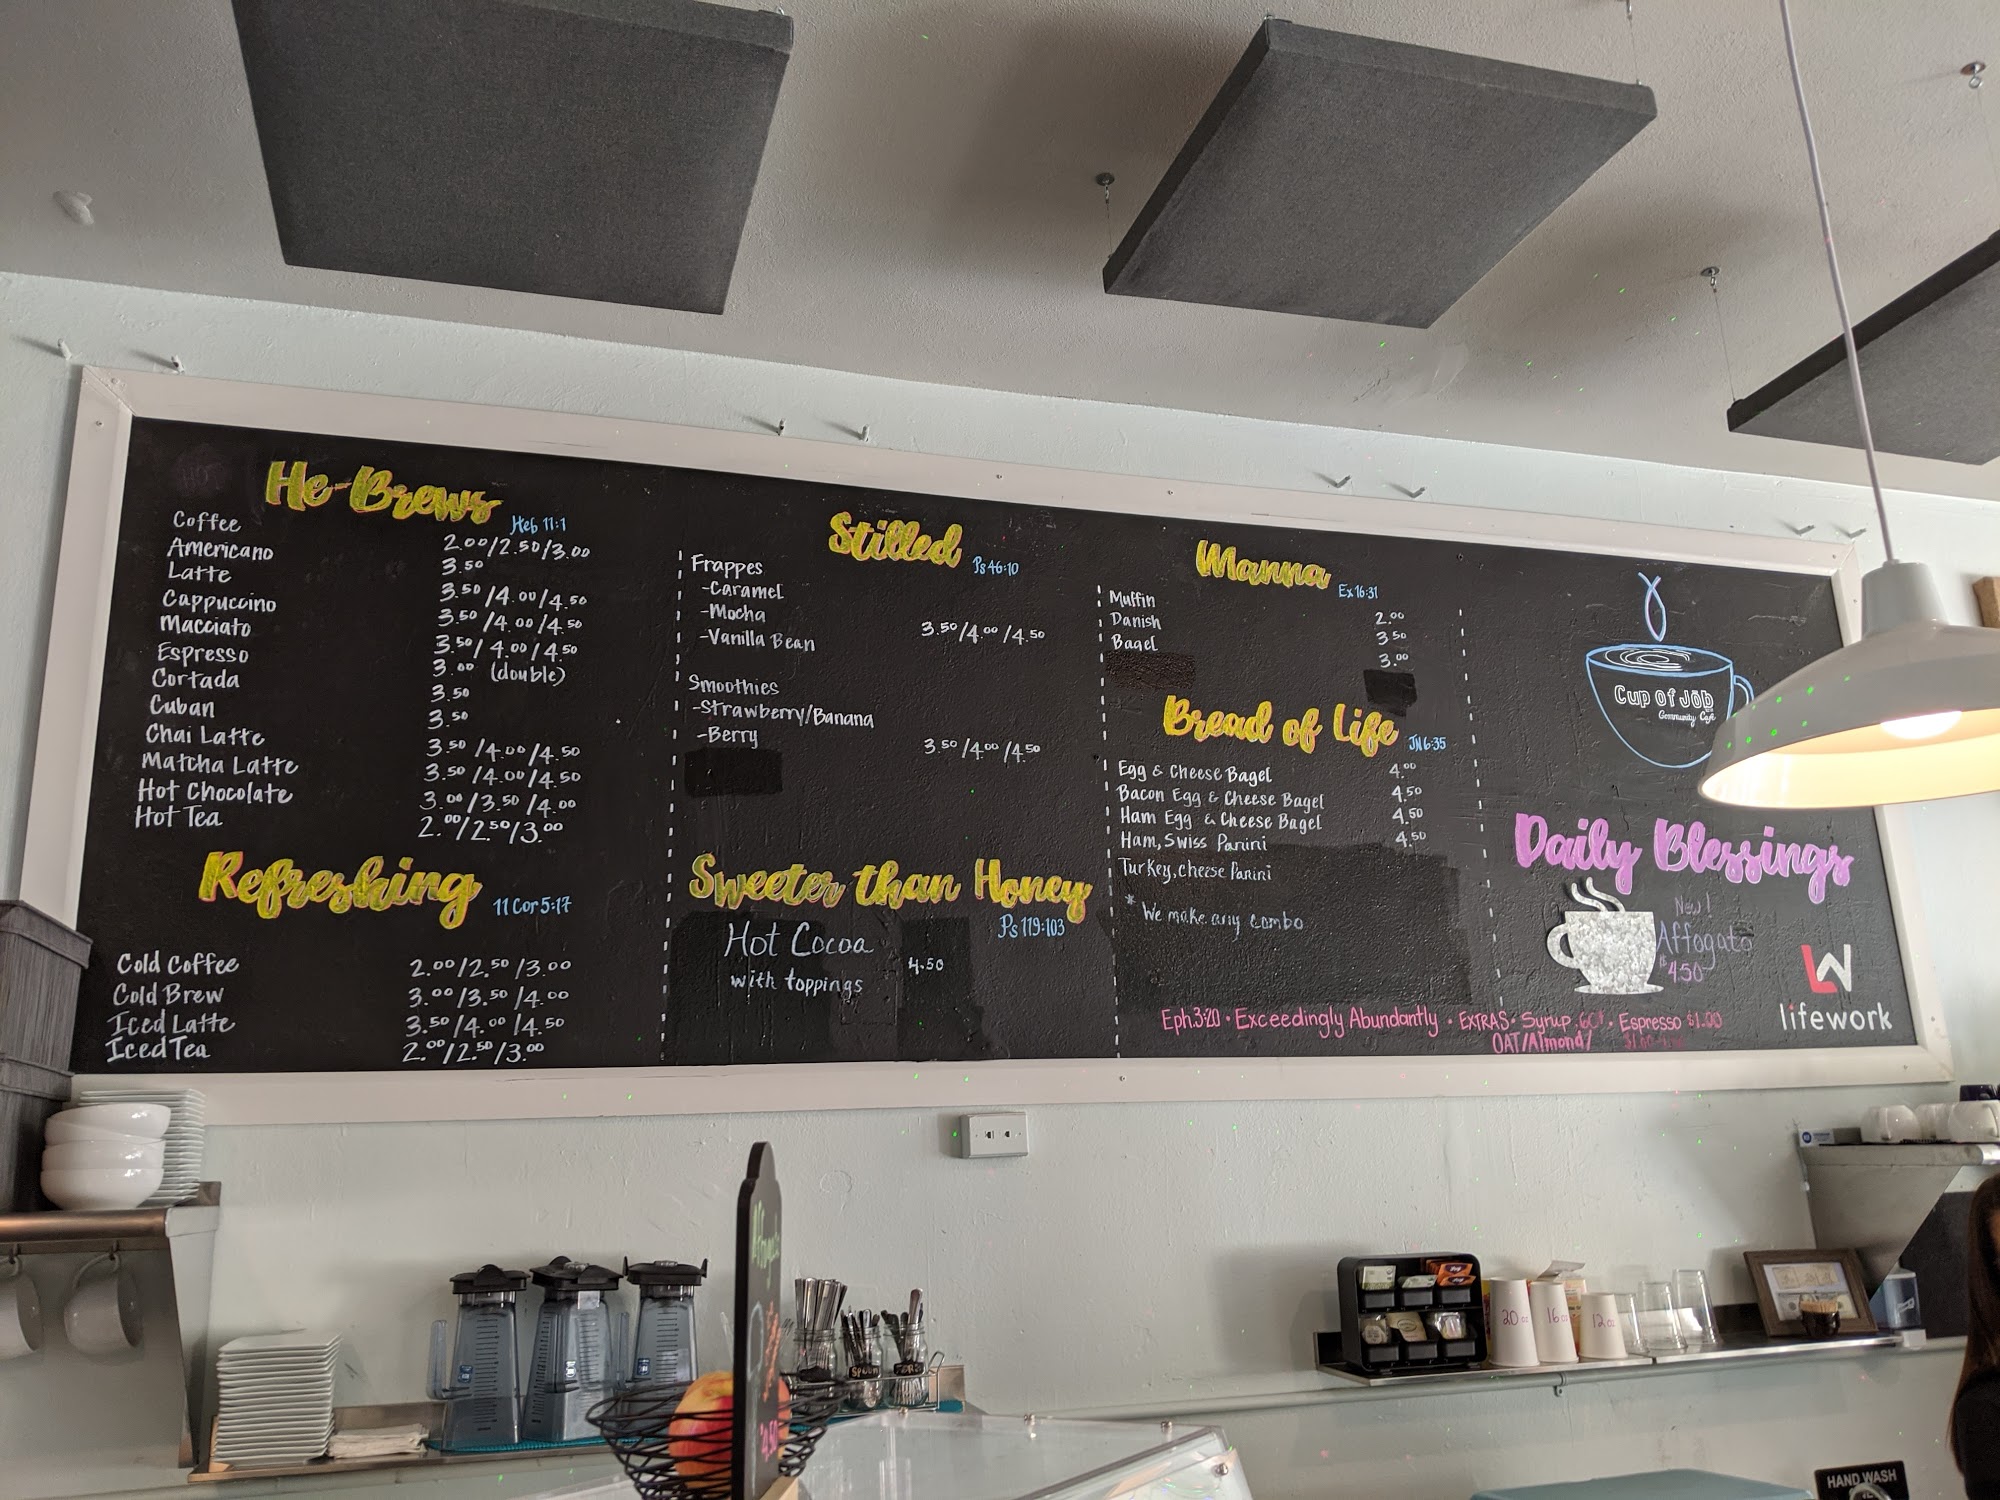 He-Brews Heb 11:1
Coffee 2.00/2.50/3.00
Americano 3.50
Latte 3.50/4.00/4.50
Cappuccino 3.50/4.00/4.50
Macciato 3.50/4.00/4.50
Espresso 3.00 (double)
Cortada 3.50
Cuban 3.50
Chai Latte 3.50/4.00/4.50
Matcha Latte 3.50/4.00/4.50
Hot Chocolate 3.00/3.50/4.00
Hot Tea 2.00/2.50/3.00
Refreshing 11 Cor 5:17
Cold Coffee 2.00/2.50/3.00
Cold Brew 3.00/3.50/4.00
Iced Latte 3.50/4.00/4.50
Iced Tea 2.00/2.50/3.00
Stilled Ps 46:10
Frappes
-Caramel
-Mocha
-Vanilla Bean 3.50/4.00/4.50
Smoothies
-Strawberry/Banana
-Berry 3.50/4.00/4.50
Sweeter than Honey
Ps 119:103
Hot Cocoa
with toppings 4.50
Manna Ex 16:31
Muffin 2.00
Danish 3.50
Bagel 3.00
Bread of Life JN 6:35
Egg & Cheese Bagel 4.00
Bacon Egg & Cheese Bagel 4.50
Ham Egg & Cheese Bagel 4.50
Ham, Swiss Panini 4.50
Turkey, cheese Panini
* We make any combo
Cup Of Job
Community Café
Daily Blessings
New!
Affogato
$4.50
LW
lifework
Eph.3:20 • Exceedingly Abundantly • EXTRAS • Syrup .60¢ • Espresso $1.00
OAT/Almond/
Affogato
4.50
SPOON
20 oz
16 oz
12 oz
HAND WASH